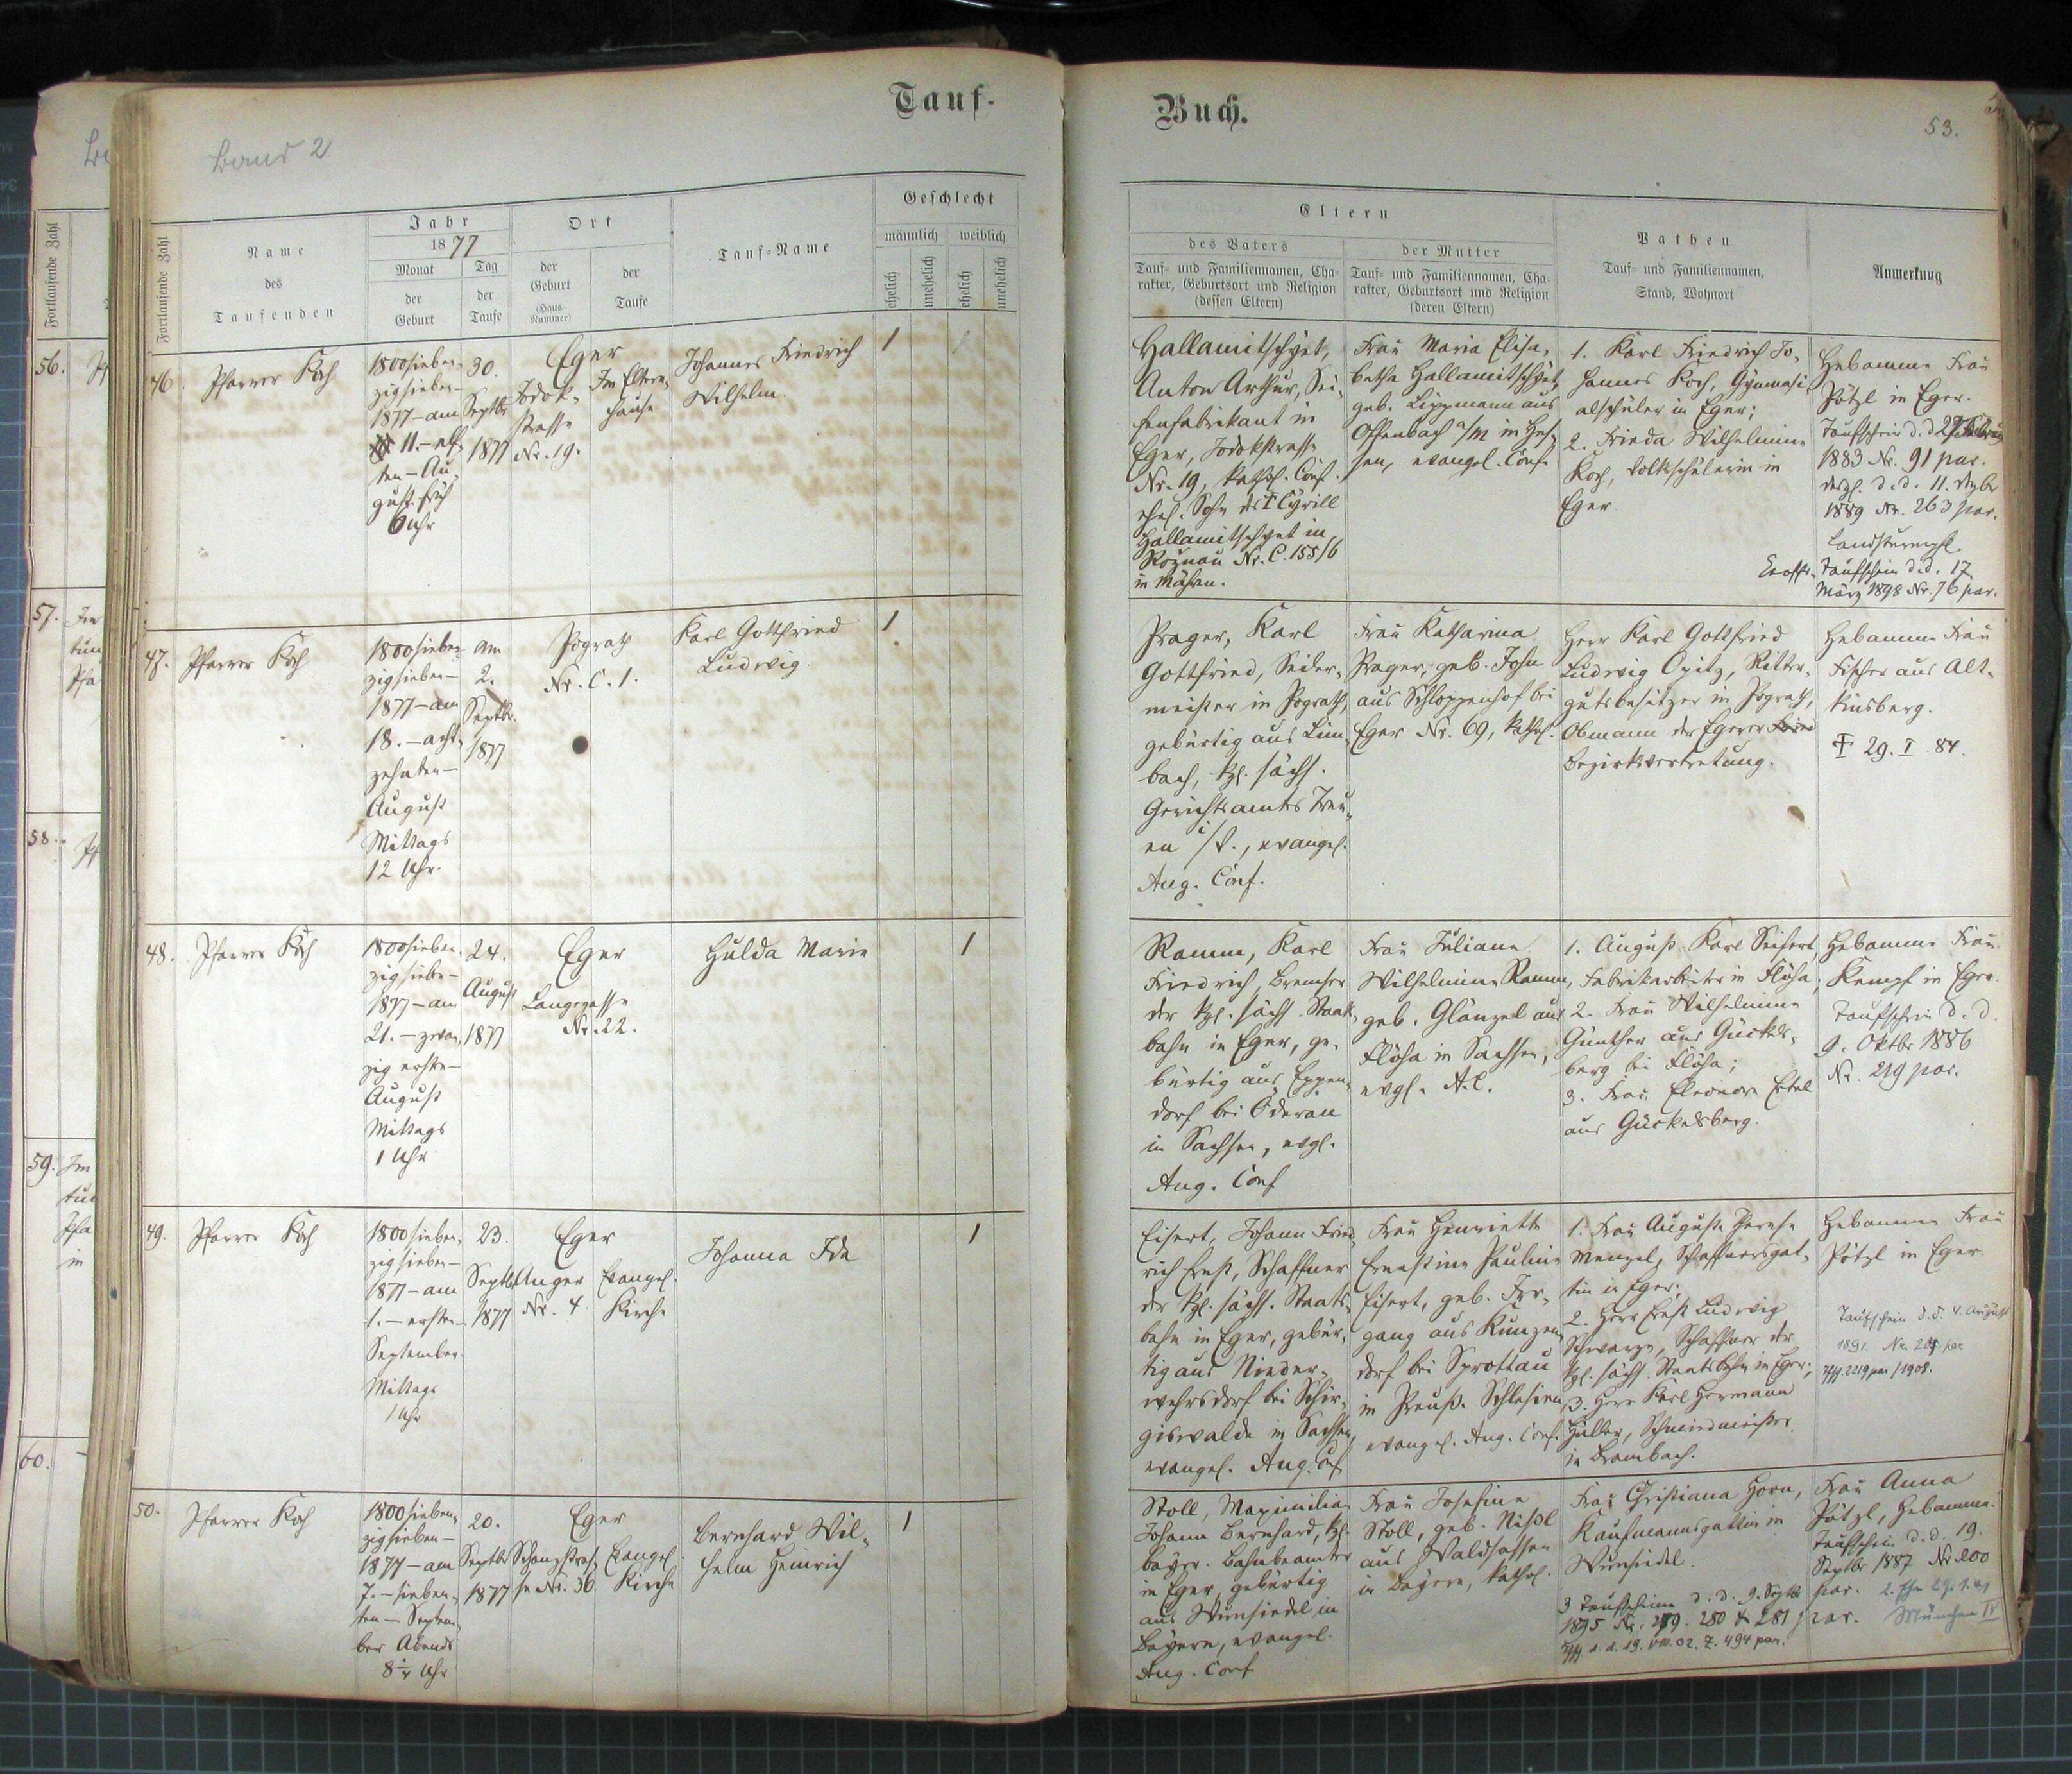 Tauf-
Band 2
Fortlaufende Zahl
Name
des
Taufenden
Jahr
1877
Monat
der
Geburt
Tag
der
Taufe
Ort
der
Geburt
(Haus-
Nummer)
der
Taufe
Tauf-Name
Geschlecht
männlich
weiblich
ehelich
unehelich
ehelich
unehelich
46.
Pfarrer Koch
1800sieben-
zigsieben-
1877 - am
11. - elf-
ten - Au-
gust früh
6 Uhr
30.
Septbr
1877
Eger
Jodok-
strasse
Nr. 19.
Im Eltern-
hause
Johannes Friedrich
Wilhelm.
1
47.
Pfarrer Koch
1800sieben-
zigsieben-
1877 - am
18. - acht-
zehnten -
August
Mittags
12 Uhr.
am
2.
Septbr.
1877
Pograth
Nr. C. 1.
Karl Gottfried
Ludwig.
1
48.
Pfarrer Koch
1800sieben-
zigsiebe-
1877 - am
21. - zwan-
zig erste -
August
Mittags
1 Uhr
24.
August
1877
Eger
Langegasse
Nr. 22.
Hulda Marie
1
49.
Pfarrer Koch
1800sieben-
zigsieben-
1877 - am
1. - ersten -
September
Mittags
1 Uhr
23.
Septbr
1877
Eger
Anger
Nr. 4
Evangel.
Kirche
Johanna Ida
1
50.
Pfarrer Koch
1800sieben-
zigsieben-
1877 - am
7. - sieben-
ten - Septem-
ber Abends
8 Uhr
20.
Septbr
1877
Eger
Schanzstras-
se Nr. 36
Evangel.
Kirche
Bernhard Wil-
helm Heinrich
1
56.
57.
58.
59.
60.
Buch.
53.
Eltern
des Vaters
Tauf- und Familiennamen, Cha-
rakter, Geburtsort und Religion
(dessen Eltern)
der Mutter
Tauf- und Familiennamen, Cha-
rakter, Geburtsort und Religion
(deren Eltern)
Pathen
Tauf- und Familiennamen,
Stand, Wohnort
Anmerkung
Hallamitschget,
Anton Arthur, Sei-
fenfabrikant in
Eger, Jodokstrasse
Nr. 19, kathol. Conf.
ehel. Sohn des † Cyrill
Hallamitschget in
Rožnau Nr. C. 155/6
in Mähren.
Frau Maria Elisa-
betha Hallamitschget,
geb. Lippmann aus
Offenbach a/M in Hes-
sen, evangel. Conf.
1. Karl Friedrich Jo-
hannes Koch, Gymnasi-
alschüler in Eger;
2. Frieda Wilhelmine
Koch, Volksschülerin in
Eger
Hebamme Frau
Pötzl in Eger.
Taufschein d. d. 27.
1883 Nr. 91 par.
d. d. 11.
1889 Nr. 263 par.
Taufschein d. d. 17.
März 1898 Nr. 76 par.
Prager, Karl
Gottfried, Seiler-
meister in Pograth,
gebürtig aus Lim-
bach, kgl. sächs.
Gerichtsamts Treu-
en i/V., evangel.
Aug. Conf.
Frau Katharina
Prager, geb. John
aus Schloppenhof bei
Eger Nr. 69, kathol.
Herr Karl Gottfried
Ludwig Opitz, Ritter-
gutsbesitzer in Pograth,
Obmann der Egerer
Bezirksvertretung.
Hebamme Frau
Fischer aus Alt-
kinsberg.
† 29. I. 84.
Ramm, Karl
Friedrich, Bremser
der kgl. sächs. Staats-
bahn in Eger, ge-
bürtig aus Eppen-
dorf bei Oderan
in Sachsen, evgl.
Aug. Conf
Frau Juliane
Wilhelmine Ramm,
geb. Glänzel aus
Flöha in Sachsen,
evgl. A. C.
1. August Karl Seifert,
Fabrikarbeiter in Flöha;
2. Frau Wilhelmine
Günther aus Gückels-
berg bei Flöha;
3. Frau Eleonore Ertel
aus Gückelsberg.
Hebamme Frau
Kempf in Eger.
Taufschein d. d.
9. Oktbr 1886
Nr. 219 par.
Eisert, Johann Fried-
rich Ernst, Schaffner
der kgl. sächs. Staats-
bahn in Eger, gebür-
tig aus Nieder-
wehrsdorf bei Schir-
giswalde in Sachsen,
evangel. Aug. Conf
Frau Henriette
Ernestine Pauline
Eisert, geb. Irr-
gang aus Kunzen-
dorf bei Sprottau
in Preuß. Schlesien
evangel. Aug. Conf.
1. Frau Auguste Therese
Menzel, Schaffnersgat-
tin in Eger;
2. Herr Ernst Ludwig
Schwarze, Schaffner der
kgl. sächs. Staatsbahn in Eger;
3. Herr Karl Hermann
Hüller, Schmiedmeister
in Brambach.
Hebamme Frau
Pötzl in Eger
Taufschein d. d. 4. August
1891 Nr. par
2219 par/1908.
Stoll, Maximilian
Johann Bernhard, kgl.
bayer. Bahnbeamter
in Eger, gebürtig
aus Wunsiedel in
Bayern, evangel.
Aug. Conf
Frau Josefine
Stoll, geb. Nißl
aus Waldsassen
in Bayern, kathol.
Frau Christiana Horn,
Kaufmannsgattin in
Wunsiedel.
3 Taufscheine d. d. 9. Septbr
1895 Nr. 279. 280 & 281 par.
d. d. 19. VIII. 02. Z. 494 par.
Frau Anna
Pötzl, Hebamme.
Taufschein d. d. 19.
Septbr 1887 Nr 200
par. 2. Ehe 29.1.41
München IV